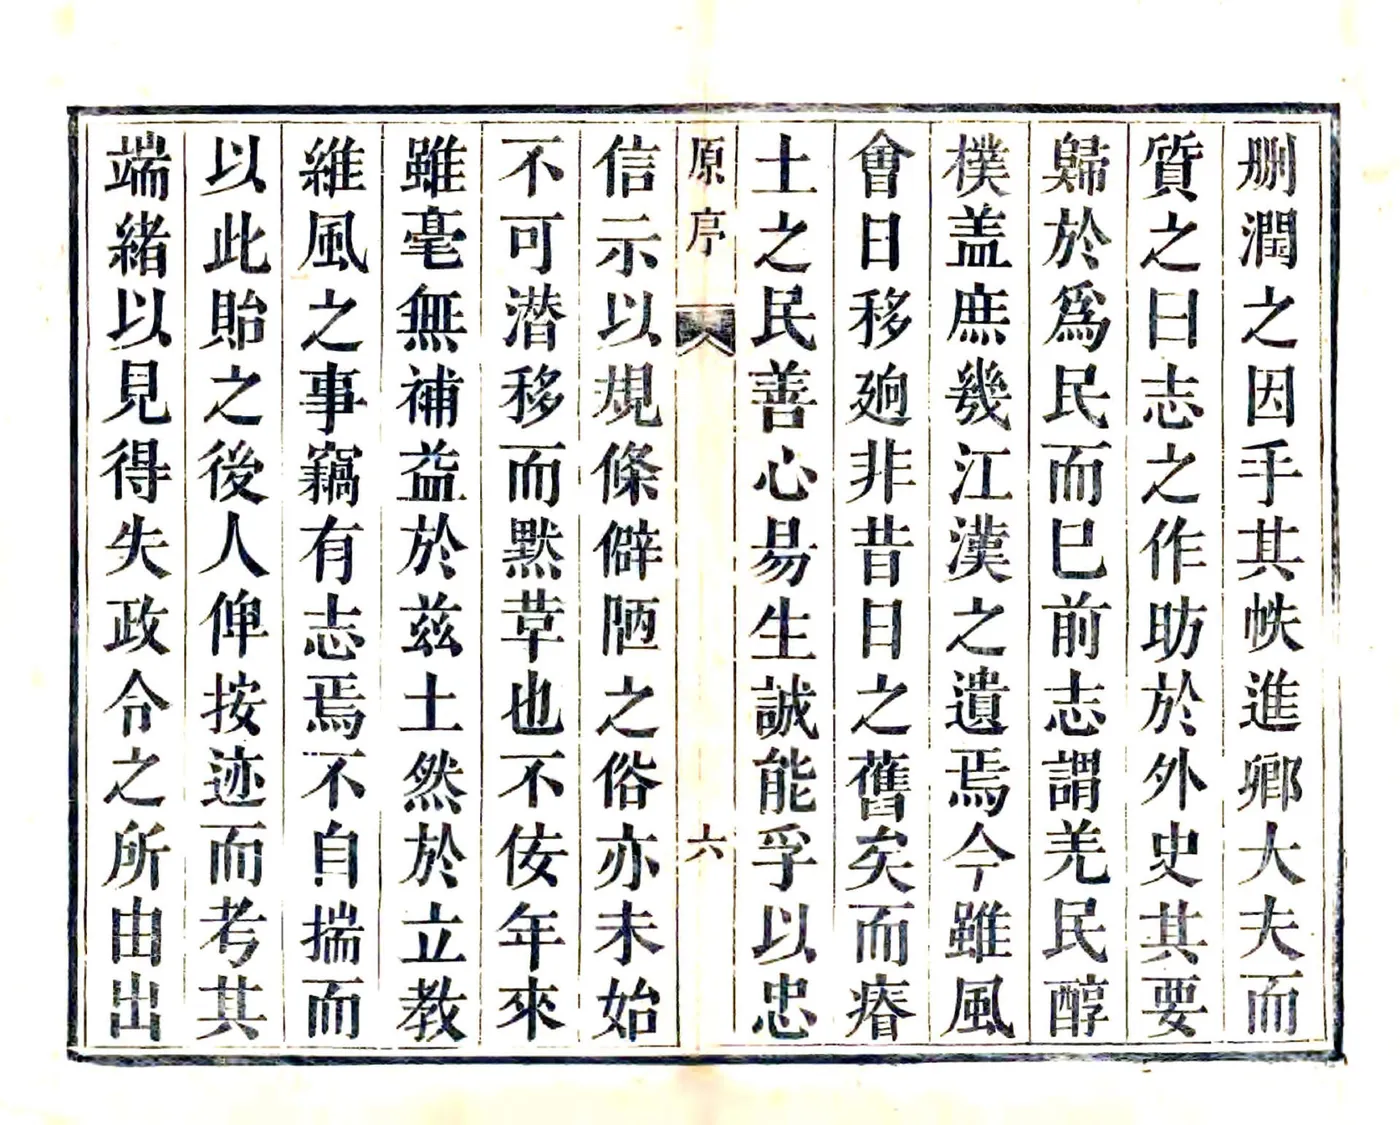 删潤之因手其帙進鄉大夫而
質之曰志之作昉於外史其要
歸於爲民而已前志謂羌民醇
樸盖庶幾江漢之遺焉今雖風
會日移廻非昔日之舊矣而瘠
土之民善心易生誠能孚以忠
原序
六
信示以規條僻陋之俗亦未始
不可潜移而黙草也不佞年來
雖毫無補益於兹土然於立教
維風之事竊有志焉不自揣而
以此貽之後人俾按迹而考其
端緒以見得失政令之所由出